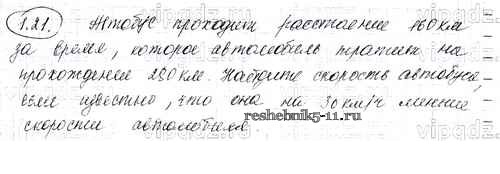 1.21. Автобус проходит расстояние 160 км
за время, которое автомобиль тратит на
прохождение 280 км. Найдите скорость автобуса,
если известно, что она на 30 км/ч меньше
скорости автомобиля.
reshebnik5-11.ru
vipgdz.ru